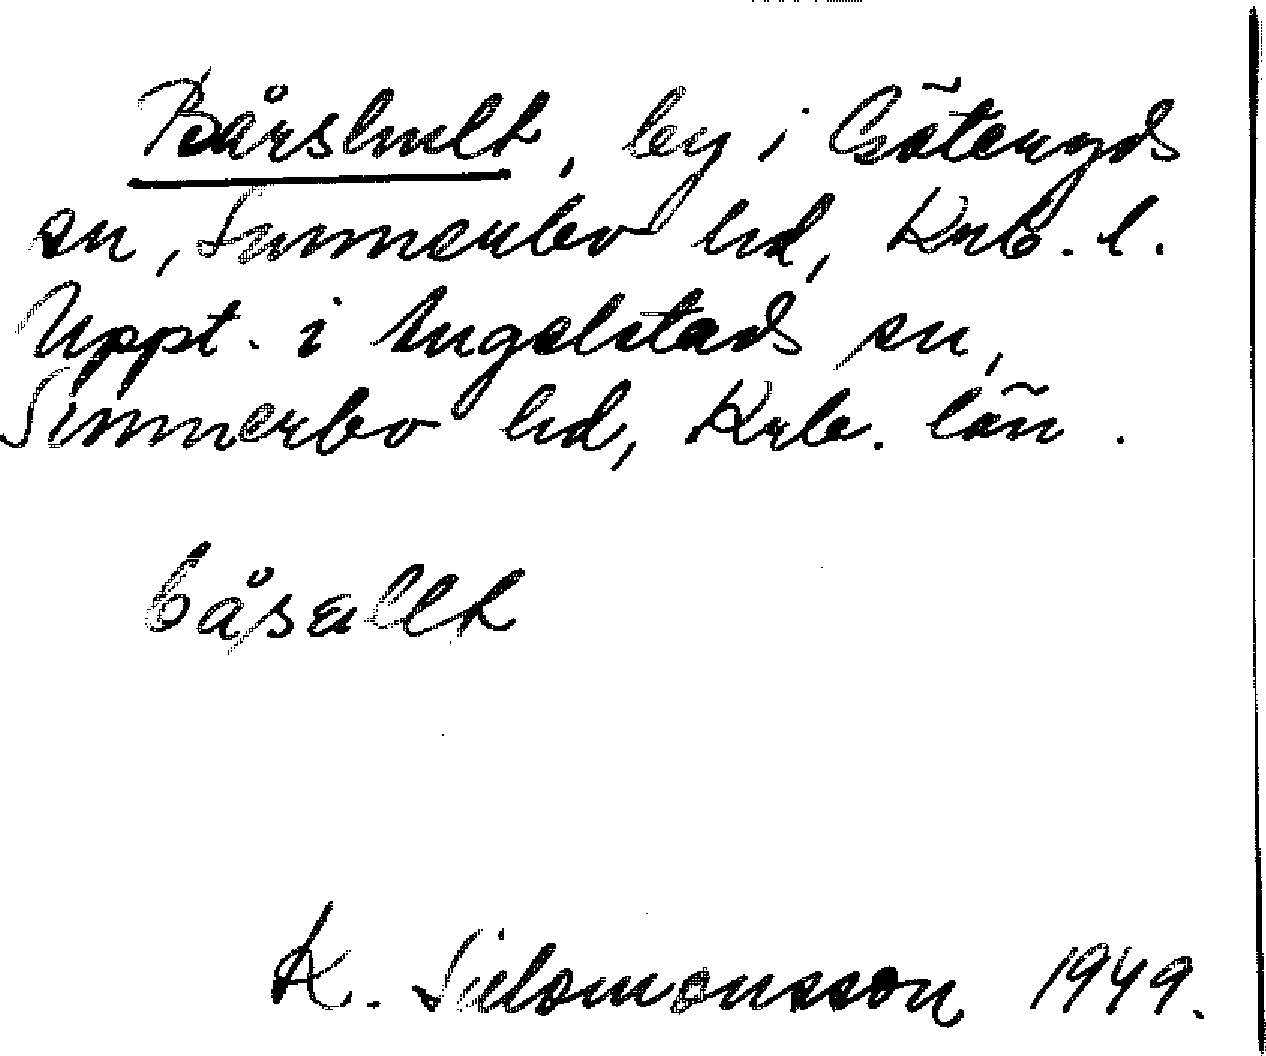 Bårshult, by i Göteryds
sn, Sunnerbo hd, Krb. l.
Uppt. i Angelstads sn,
Sunnerbo hd, Krb. län.
båsallt
K. Salomonsson 1949.